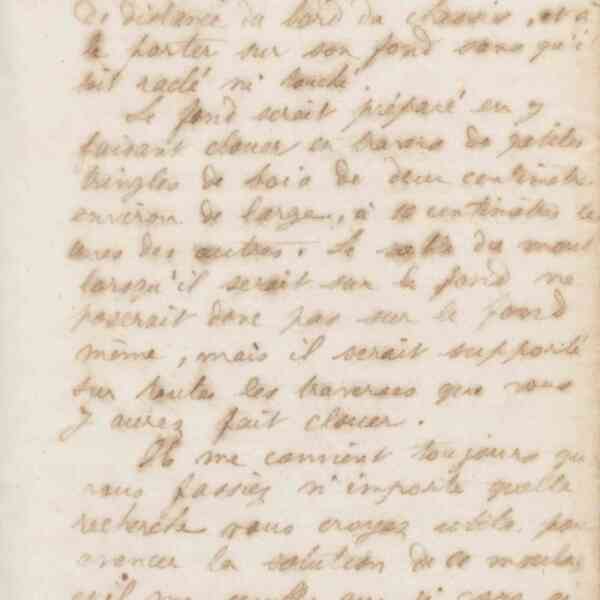 de distance du bord du chassis, et à
le porter sur son fond sans qu'i
soit raclé ni touché.
Le fond serait préparé en y
faisant clouer en travers de petites
tringles de bois de deux centimètre
environ de large, à 10 centimètres le
unes des autres. Le sable du moul
lorsqu'il serait sur le fond ne
poserait donc pas sur le fond
même, mais il serait supporté
sur toutes les traverses que vous
y aurez fait clouer.
Il me convient toujours qu
vous fassiez n'importe quelle
recherche vous croyez utile pou
avancer la solution de ce moula